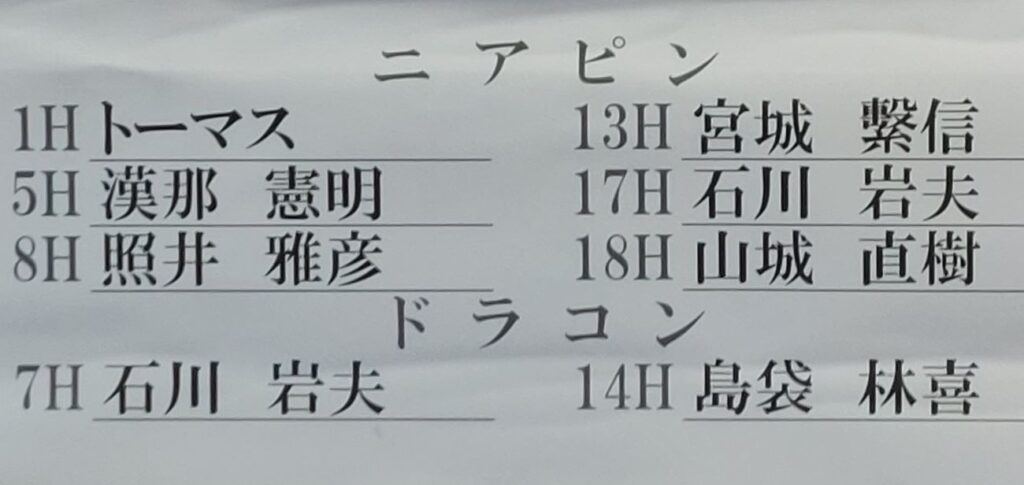 ニアピン
1H トーマス 13H 宮城 繋信
5H 漢那 憲明 17H 石川 岩夫
8H 照井 雅彦 18H 山城 直樹
ドラコン
7H 石川 岩夫 14H 島袋 林喜